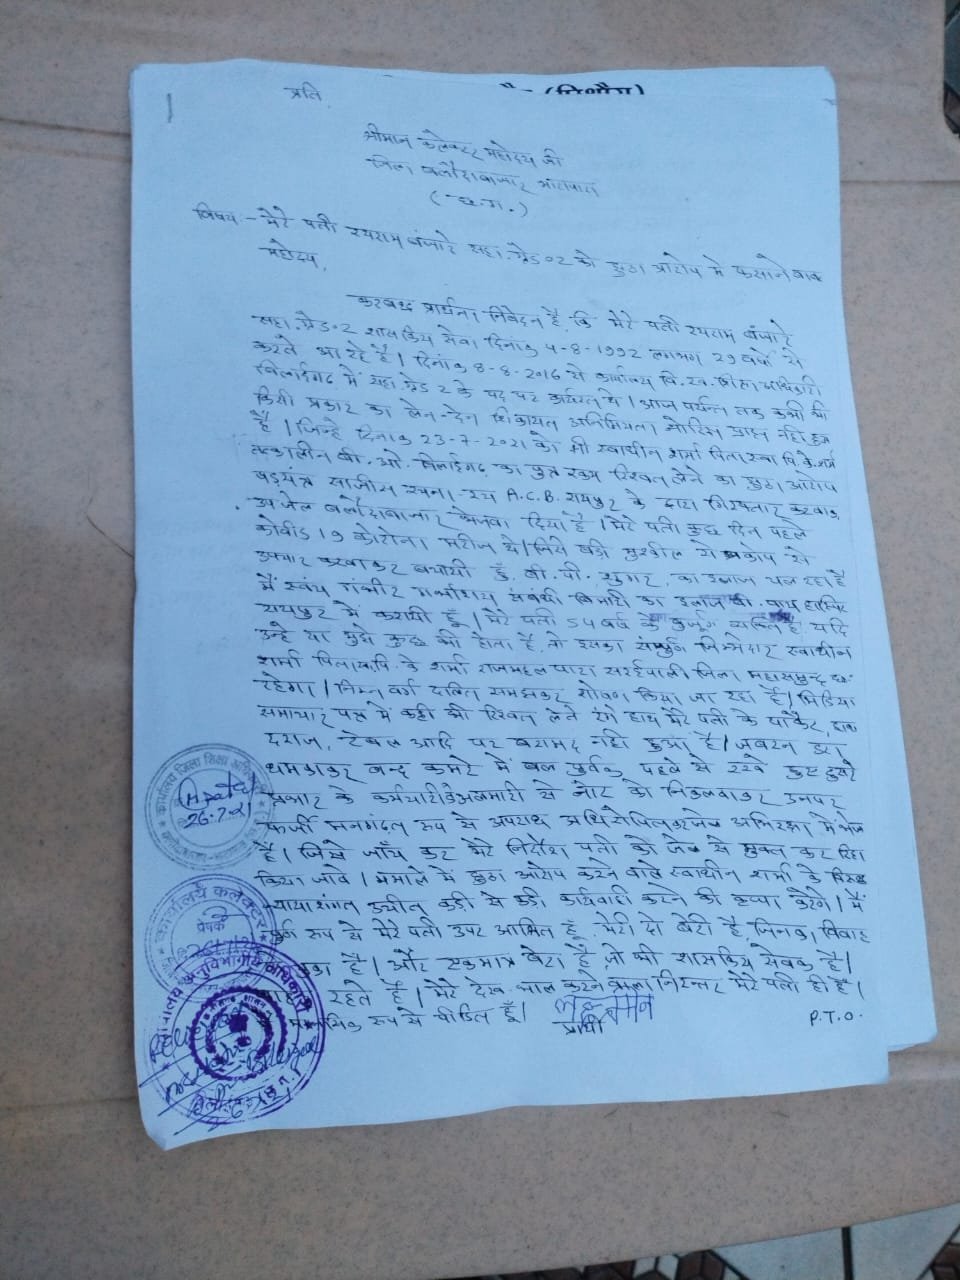 प्रति
श्रीमान कलेक्टर महोदय जी
जिला बलौदाबाजार भाटापारा
(छ.ग.)
विषय:- मेरे पती रयराम बंजारे सहा. ग्रेड०२ को झुठा आरोप मे फसाने बाबत
महोदय,
करबध्द प्रार्थना निवेदन है, कि मेरे पती रयराम बंजारे
सहा. ग्रेड०२ शासकिय सेवा दिनांक 4-8-1992 लगभग 29 वर्षो से
करते आ रहे है। दिनांक 8-8-2016 से कार्यालय वि. ख. शिक्षा अधिकारी
बिलाईगढ में सहा. ग्रेड 2 के पद पर कार्यरत थे। आज पर्यन्त तक कभी भी
किसी प्रकार का लेन-देन शिकायत अनिमियता नोटिस प्राप्त नही हुआ
है। जिन्हे दिनांक 23-7-2021 को श्री स्वाधीन शर्मा पिता स्व० वि. के. शर्मा
तत्कालीन बी.ओ. बिलाईगढ का पुत्र रकम रिश्वत लेने का झुठा आरोप
षड़यंत्र साजीस रचना रच A.C.B. रायपुर के द्वारा गिरफ्तार करवाकर
उप जेल बलौदाबाजार भेजवा दिया है। मेरे पती कुछ दिन पहले
कोवीड 19 कोरोना मरीज थे। जिसे बड़ी मुश्कील से प्रकोप से
उपचार करवाकर बचायी हूँ, बी.पी. सुगर, का इलाज चल रहा है
मैं स्वंय गंभीर गर्भाशय संबंधी बिमारी का इलाज
रायपुर में करायी हूँ। मेरे पती 54 वर्ष के बुजुर्ग व्यक्ति है यदि
उन्हे या मुझे कुछ भी होता है, तो इसका संम्पुर्ण जिम्मेदार स्वाधीन
शर्मा पिता स्व. वि. के शर्मा राजमहल पारा सरईपाली जिला महासमुन्द छ.ग.
रहेगा। निम्न वर्ग दलित समझकर शोषण किया जा रहा है। मिडिया
समाचार पत्र में कही भी रिश्वत लेते रंगे हाथ मेरे पती के पॉकेट, हाथ
दराज, टेबल आदि पर बरामद नही हुआ है। जबरन डरा
धमकाकर बन्द कमरे में बल पुर्वक पहले से रखे हुए दुसरे
प्रभार के कर्मचारी के अलमारी से नोट को निकलवाकर उनपर
फर्जी मनगंढ़त रूप से अपराध अधिरोपित कर जेल अभिरक्षा में भेजा
है। जिसे जाँच कर मेरे निर्दोश पती को जेल से मुक्त कर रिहा
किया जावे। मामले में झुठा आरोप करने वाले स्वाधीन शर्मा के विरूध्द
न्याय शंगत उचीत कड़ी से कड़ी कार्यवाही करने की कृप्पा करेंगे। मैं
रूप से मेरे पती उपर आश्रित हूँ। मेरी दो बेटी है, जिनका विवाह
चुका है। और एकमात्र बेटा है, जो भी शासकिय सेवक है।
रहते हैं। मेरे देख भाल करने वाला निरन्तर मेरे पती ही है।
रूप से पीडित हूँ।
प्रार्थी
P.T.O.
कार्यालय जिला शिक्षा अधिकारी
26.7.21
कार्यालय कलेक्टर
प्रेषक
कार्यालय अनुविभागीय अधिकारी